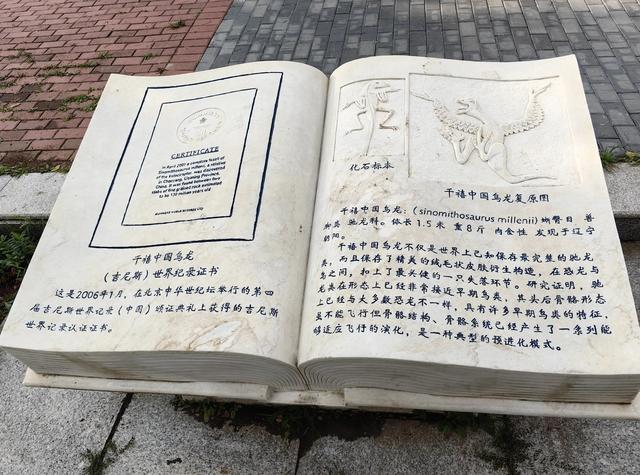 CERTIFICATE
In April 2001 a complete fossil of
Sinornithosaurus millenii, a relative
of the Velociraptor, was discovered
in Chaoyang, Liaoning Province,
China. It was found between two
slabs of fine grained rock estimated
to be 130 million years old
GUINNESS WORLD RECORDS LTD
千禧中国鸟龙
（吉尼斯）世界纪录证书
这是2006年1月，在北京中华世纪坛举行的第四
届吉尼斯世界记录（中国）颁证典礼上获得的吉尼斯
世界记录认证证书。
化石标本
千禧中国鸟龙复原图
千禧中国鸟龙：（sinornithosaurus millenii）蜥臀目 兽
脚类 驰龙科。体长1.5米 重8斤 肉食性 发现于辽宁
朝阳。
千禧中国鸟龙不仅是世界上已知保存最完整的驰龙
类，而且保存了精美的绒毛状皮肤衍生构造，在恐龙与
鸟之间，扣上了最关键的一只失落环节。研究证明，驰
龙类在形态上已经非常接近早期鸟类，其头后骨骼形态
上已经与大多数恐龙不一样，具有许多早期鸟类的特征，
虽不能飞行但骨骼结构、骨骼系统已经产生了一条列能
够适应飞行的演化，是一种典型的预进化模式。